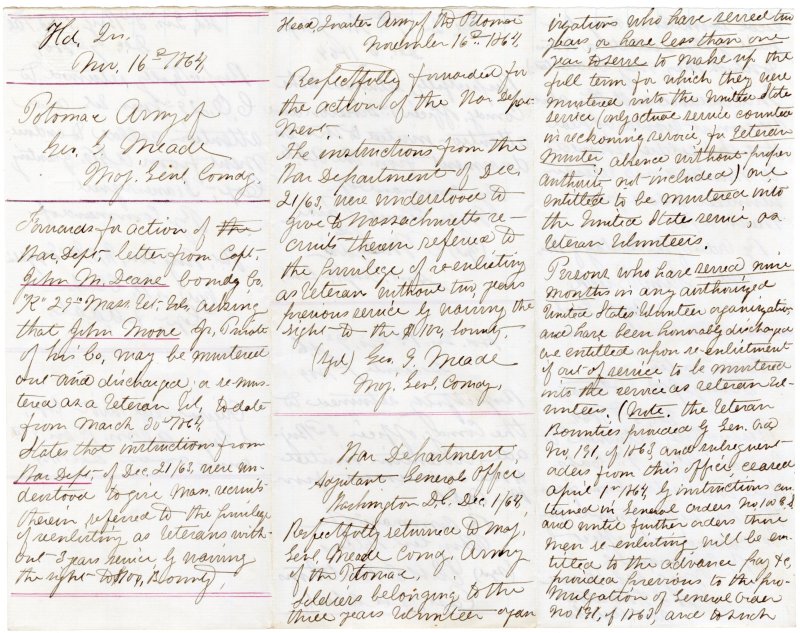 Hd. Qrs.
Nov. 16th 1864
Potomac Army of
Geo. G. Meade
Maj. Genl Comdg.
Forwards for action of the
War Dept. letter from Capt.
John M. Deane comdg Co.
"K" 29th Mass Vet. Vols, asking
that John Moore Jr, Private
of his Co, may be mustered
out and discharged, or re-mus-
tered as a Veteran Vol, to date
from March 30th 1864
States that instructions from
War Dept. of Dec. 21/63, were un-
derstood to give Mass. recruits
therein referred to the privilege
of reenlisting as Veterans with-
out 2 years service by waiving
the right to $100, Bounty,
Head Quarters Army of the Potomac
November 16th 1864,
Respectfully forwarded for
the action of the War Depart-
ment.
The instructions from the
War Department of Dec.
21/63, were understood to
give to Massachusetts re-
cruits therein refered to
the privilege of reenlisting
as Veteran without two years
previous service by waiving the
right to the $100, bounty,
(Sgd) Geo. G. Meade
Maj. Genl Comdg,
War Department
Adjutant Generals Office
Washington D.C. Dec. 1/64,
Respectfully returned to Maj.
Genl Meade Comdg Army
of the Potomac.
Soldiers belonging to the
three years Volunteer organ
izations who have served two
years, or have less than one
year to serve to make up the
full term for which they were
mustered into the United State
service (only actual service counted
in reckoning service for Veteran
Muster, absence without proper
authority not included) are
entitled to be mustered into
the United States service, as
Veteran Volunteers.
Persons who have served nine
months in any authorized
United States Volunteer organization
and have been honorably discharged
are entitled upon re-enlistment
if out of service to be mustered
into the service as Veteran Vol-
unteers. (Note. the Veteran
Bounties provided by Gen. Ord
No, 191, of 1863, and subsequent
orders from this office, ceased
April 1st 1864, by instructions con-
tained in General Orders No, 100 C.S.
and until further orders these
men re enlisting will be en-
titled to the advance pay &c,
provided previous to the pro-
mulgation of General Order
No 191, of 1863, and to such